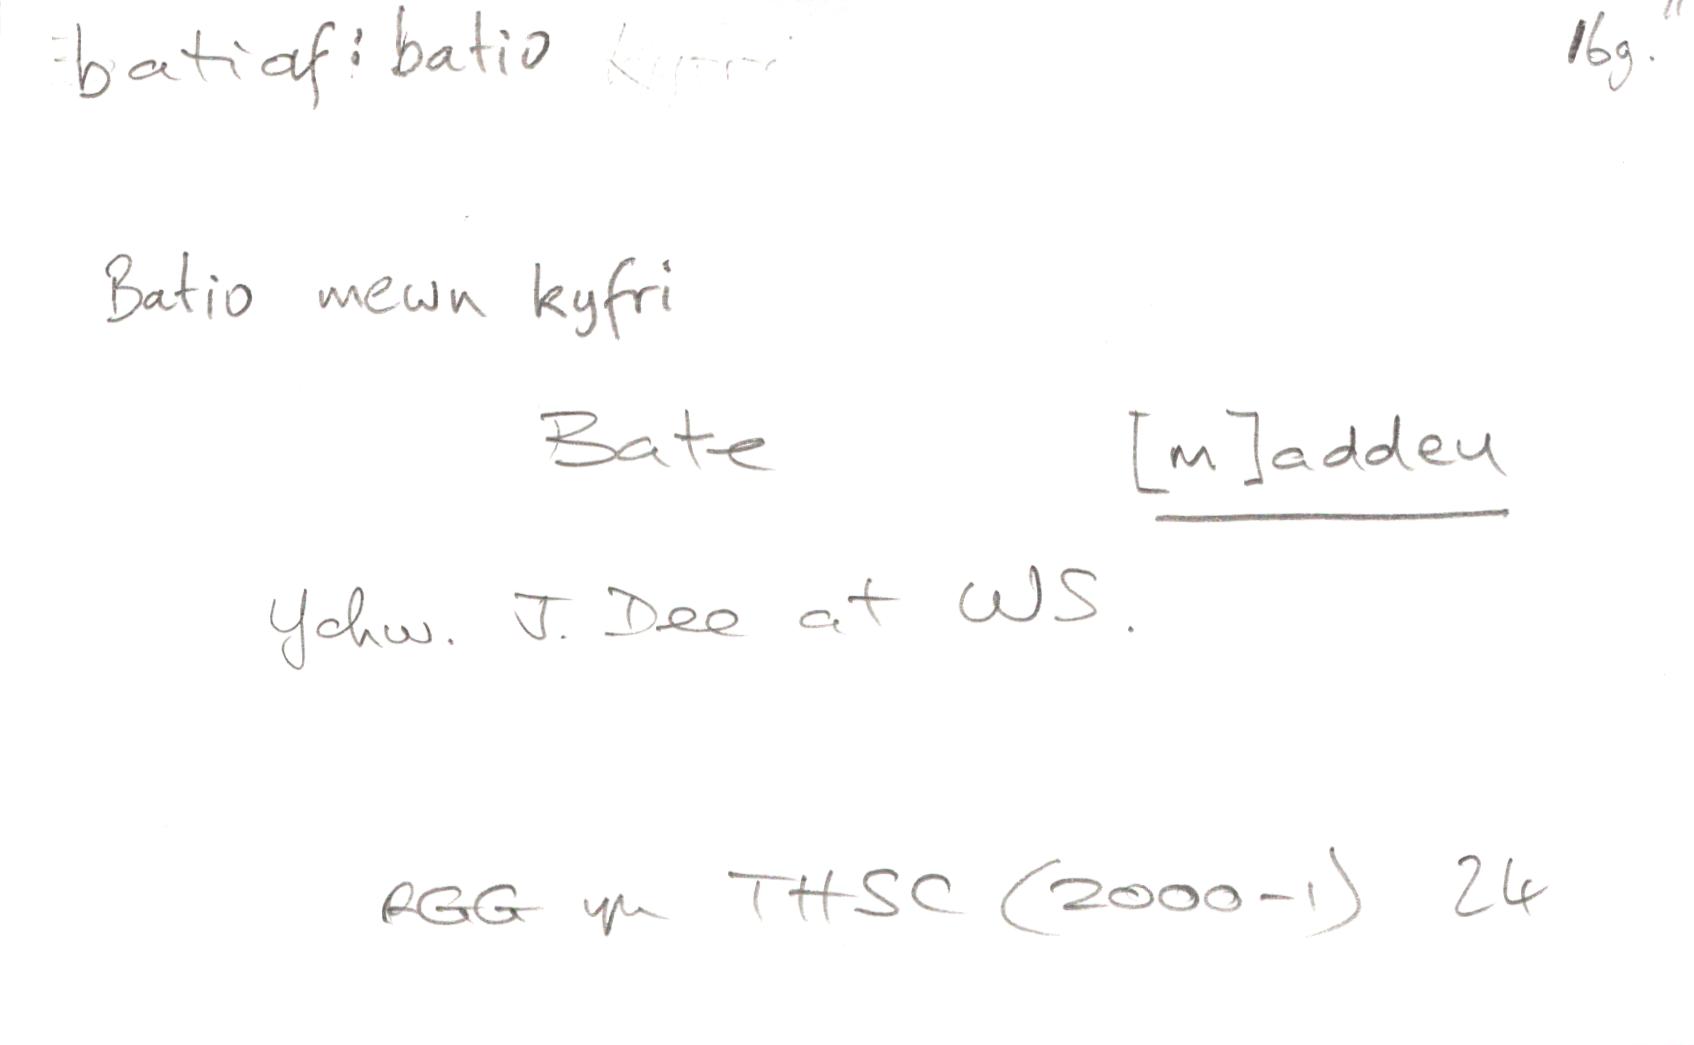 batiaf: batio 16g.
Batio mewn kyfri
Bate [m]addeu
Ychw. J. Dee at WS.
RGG yn THSC (2000-1) 24